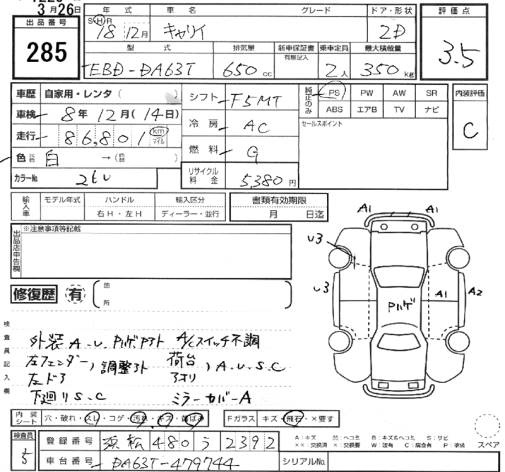 3月26日
出品番号
285
年式 車名 グレード ドア・形状
S H 18 12月 キャリイ 2D
型式 排気量 新車保証書 有無記入 乗車定員 最大積載量
EBD-DA63T 650cc 2人 350kg
評価点
3.5
車歴 自家用・レンタ( )
車検 8年12月(14日)
走行 86,801 km マイル
色 白 →
カラーNo 26U
シフト F5MT
冷房 AC
燃料 G
リサイクル料金 5,380円
純正のみ PS PW AW SR
ABS エアB TV ナビ
セールスポイント
内装評価
C
輸入車 モデル年式 ハンドル 輸入区分
右H・左H ディーラー・並行
書類有効期限
月 日迄
出品店申告欄 ※注意事項等記載
修復歴 有 箇所
検査員記入欄
外装 A.U. A/Cスイッチ不調
左フェンダー 調整外 荷台 A.U.S.C
左ドア アオリ
下廻りS.C ミラーカバーA
A1 A1
U3
U3 A1 A2
スペア
内装シート 穴・破れ・スレ・コゲ・汚れ
Fガラス キズ・飛石・×要す
検査員 5
登録番号 浜松 480 う 2392
車台番号 DA63T-479744
シリアルNo.
A:キズ U:ヘコミ B:キズ&ヘコミ S:サビ
××:交換済 ×:交換要 W:波有 C:腐食有 P:要塗装